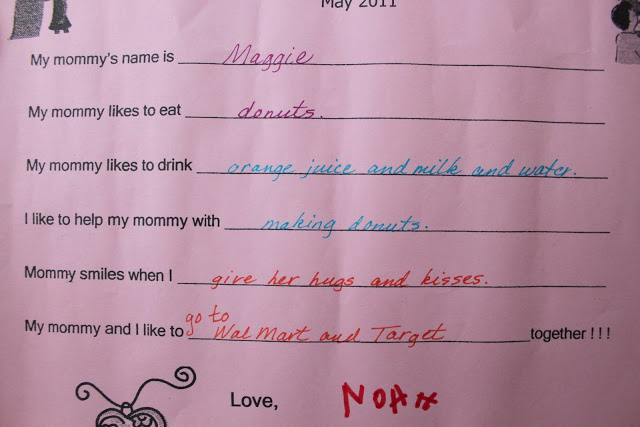 May 2011
My mommy's name is Maggie
My mommy likes to eat donuts.
My mommy likes to drink orange juice and milk and water.
I like to help my mommy with making donuts.
Mommy smiles when I give her hugs and kisses.
My mommy and I like to go to Wal Mart and Target together ! ! !
Love, NOAH